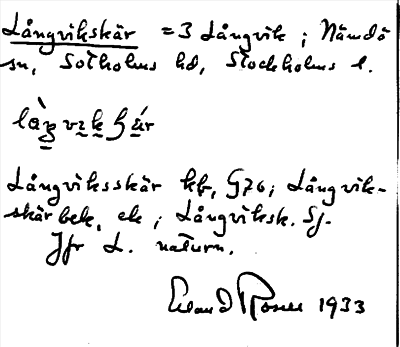 Långvikskär = 3 Långvik ; Nämdö
sn, Sotholms hd, Stockholms l.
Långviksskär kbr, G76; Långvik-
skär bek. ek ; Långviksk. Sj.
Jfr L. naturn.
Erland Rosell 1933